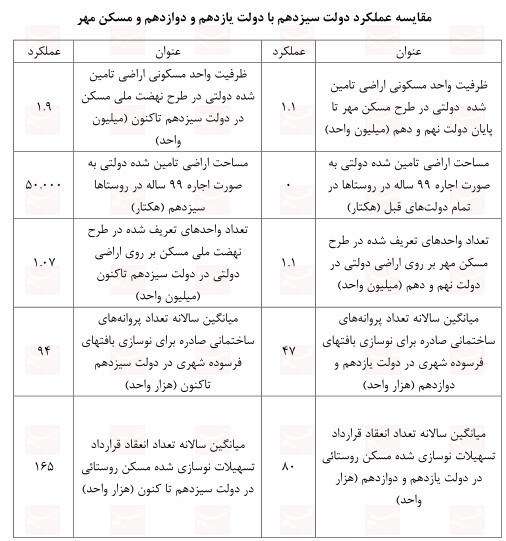 مقایسه عملکرد دولت سیزدهم با دولت یازدهم و دوازدهم و مسکن مهر
عنوان
عملکرد
عنوان
عملکرد
ظرفیت واحد مسکونی اراضی تامین
شده دولتی در طرح مسکن مهر تا
پایان دولت نهم و دهم (میلیون واحد)
۱.۱
ظرفیت واحد مسکونی اراضی تامین
شده دولتی در طرح نهضت ملی مسکن
در دولت سیزدهم تاکنون (میلیون
واحد)
۱.۹
مساحت اراضی تامین شده دولتی به
صورت اجاره ۹۹ ساله در روستاها در
تمام دولت‌های قبل (هکتار)
۰
مساحت اراضی تامین شده دولتی به
صورت اجاره ۹۹ ساله در روستاها
سیزدهم (هکتار)
۵۰.۰۰۰
تعداد واحدهای تعریف شده در طرح
مسکن مهر بر روی اراضی دولتی در
دولت نهم و دهم (میلیون واحد)
۱.۱
تعداد واحدهای تعریف شده در طرح
نهضت ملی مسکن بر روی اراضی
دولتی در دولت سیزدهم تاکنون
(میلیون واحد)
۱.۰۷
میانگین سالانه تعداد پروانه‌های
ساختمانی صادره برای نوسازی بافتهای
فرسوده شهری در دولت یازدهم و
دوازدهم (هزار واحد)
۴۷
میانگین سالانه تعداد پروانه‌های
ساختمانی صادره برای نوسازی بافتهای
فرسوده شهری در دولت سیزدهم
تاکنون (هزار واحد)
۹۴
میانگین سالانه تعداد انعقاد قرارداد
تسهیلات نوسازی شده مسکن روستائی
در دولت یازدهم و دوازدهم (هزار
واحد)
۸۰
میانگین سالانه تعداد انعقاد قرارداد
تسهیلات نوسازی شده مسکن روستائی
در دولت سیزدهم تا کنون (هزار واحد)
۱۶۵